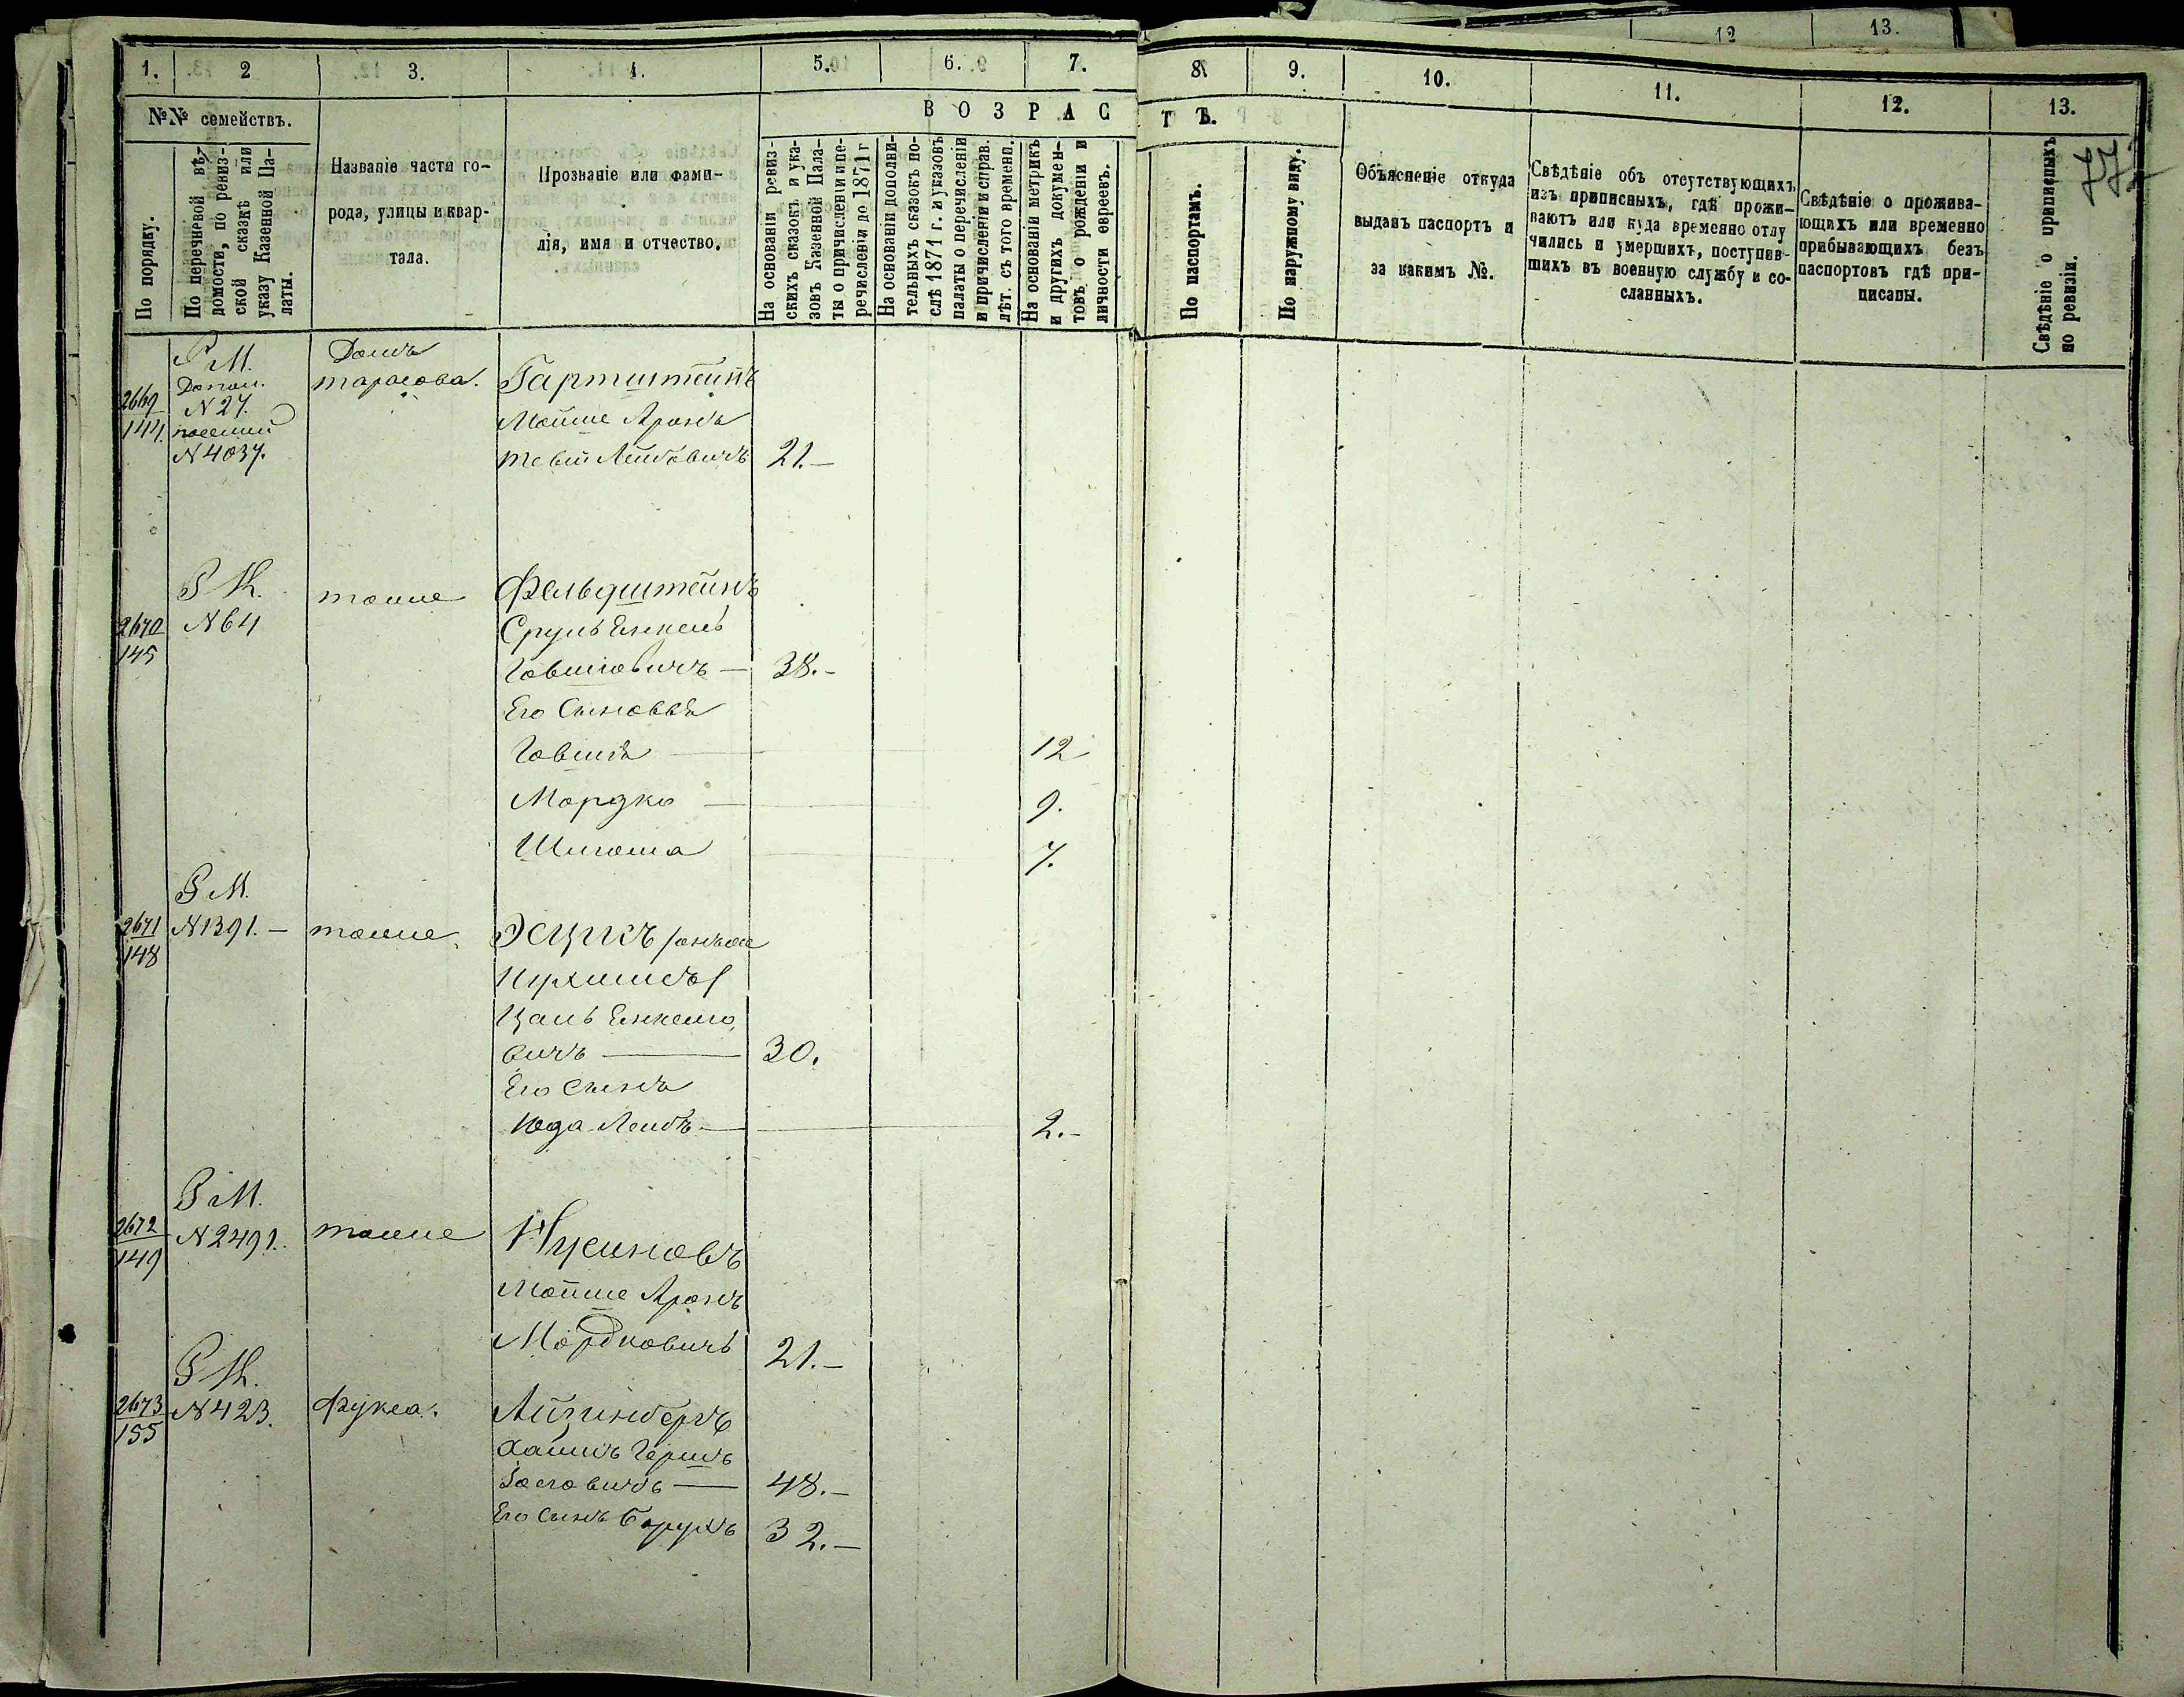 12
13.
1.
2
3.
4.
5.
6.
7.
8.
9.
10.
11.
12.
13.
№№ семействъ.
По порядку.
По перечневой вѣ-
домости, по ревиз-
ской сказкѣ или
указу Казенной Па-
латы.
Названіе части го-
рода, улицы и квар-
тала.
Прозваніе или фами-
лія, имя и отчество.
ВОЗРАСТЪ.
На основаніи ревиз-
скихъ сказокъ и ука-
зовъ Казенной Пала-
ты о причисленіи и пе-
речисленіи до 1871 г
На основаніи дополни-
тельныхъ сказокъ по-
слѣ 1871 г. и указовъ
палаты о перечисленіи
и причисленіи и справ.
лѣт. съ того времени.
На основаніи метрикъ
и другихъ докумен-
товъ о рожденіи и
личности евреевъ.
По паспортамъ.
По наружному виду.
Объясненіе откуда
выданъ паспортъ и
за какимъ №.
Свѣдѣніе объ отсутствующихъ
изъ приписныхъ, гдѣ прожи-
ваютъ или куда временно отлу
чились и умершихъ, поступив-
шихъ въ военную службу и со-
сланныхъ.
Свѣдѣніе о прожива-
ющихъ или временно
прибывающихъ безъ
паспортовъ гдѣ при-
писаны.
Свѣдѣніе о приписныхъ
по ревизіи.
Р М.
Допол.
N 27.
N 4037.
2669
144
Домъ
тарасова.
Гартштейнъ
Мойше Аронъ
Тевій Лейбовичъ 21.—
Р К.
N 64
2670
145
тоже
Фельдштейнъ
Сруль Енкель
Говшіовичъ — 38.—
Его Сыновья
Говшія — 12
Мордко — 9.
Шліома 7.
Р М.
2671
148
N 1391. —
тоже
Эсцикъ /онъже
Цаль Енкеліо
вичъ — 30.
Его сынъ
Юда Лейбъ — 2.—
Р М.
2672
149
N 2491.
тоже
Нусиновъ
Мойше Аронъ
Мордковичъ 21.—
Р К.
2673
155
N 423.
Фукса.
Айзинбергъ
Хаимъ Гершъ
Іосіовичъ — 48.—
Его сынъ Борухъ 32.—